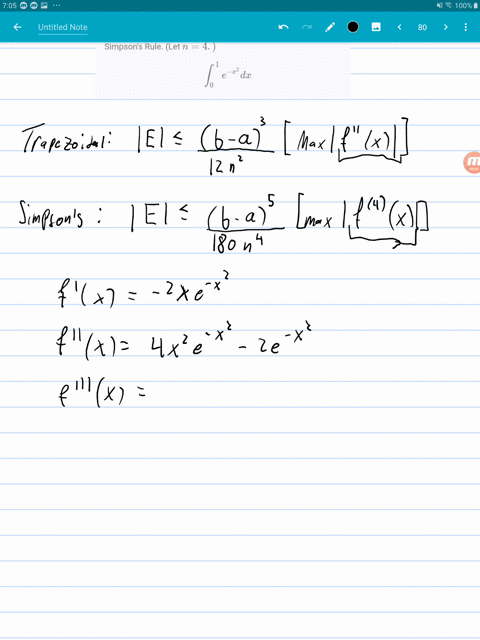 7:05 100%
Untitled Note 80
Simpson's Rule. (Let n = 4. )
∫₀¹ e^{-x²} dx
Trapezoidal: |E| ≤ (b-a)³/12n² [Max |f''(x)|]
Simpson's: |E| ≤ (b-a)⁵/180n⁴ [max |f⁽⁴⁾(x)|]
f'(x) = -2xe^{-x²}
f''(x) = 4x²e^{-x²} - 2e^{-x²}
f'''(x) =